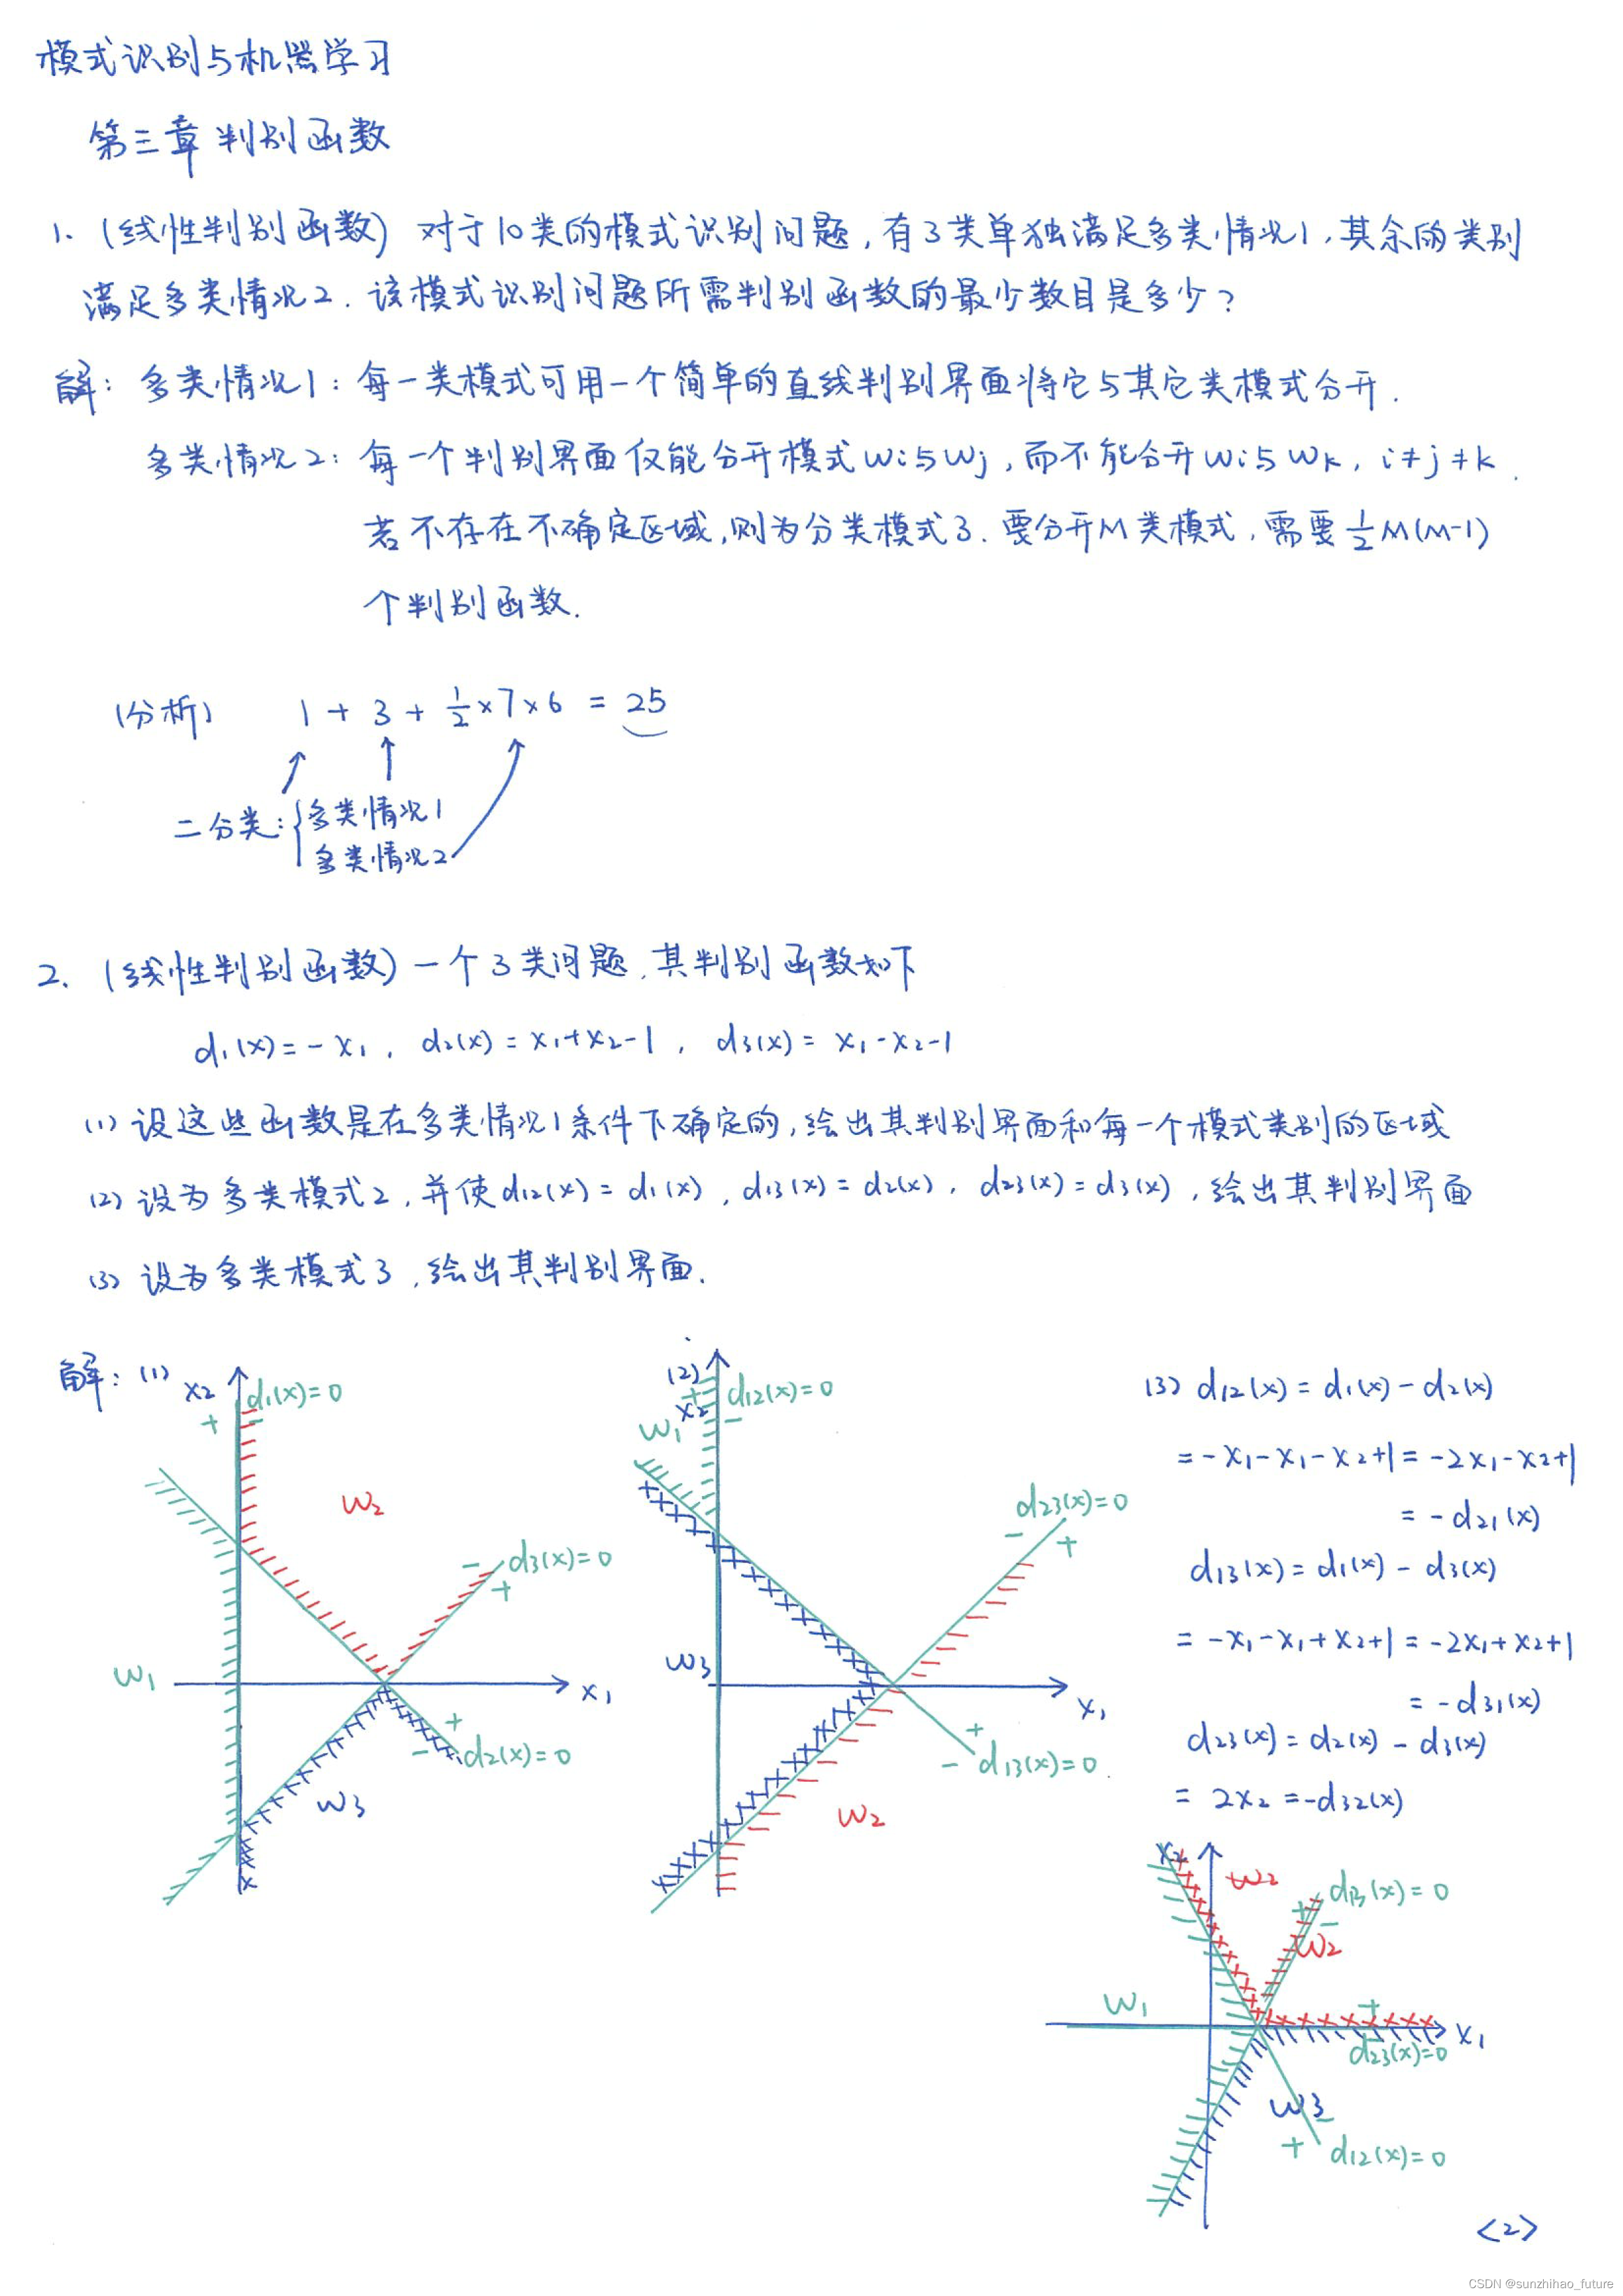 模式识别与机器学习
第三章 判别函数
1. (线性判别函数) 对于10类的模式识别问题,有3类单独满足多类情况1,其余的类别
满足多类情况2. 该模式识别问题所需判别函数的最少数目是多少?
解: 多类情况1: 每一类模式可用一个简单的直线判别界面将它与其它类模式分开.
多类情况2: 每一个判别界面仅能分开模式wi与wj,而不能分开wi与wk, i≠j≠k.
若不存在不确定区域,则为分类模式3. 要分开M类模式,需要½M(M-1)
个判别函数.
(分析) 1 + 3 + ½×7×6 = 25
二分类: {多类情况1
多类情况2
2. (线性判别函数) 一个3类问题,其判别函数如下
d1(x)=-x1, d2(x)=x1+x2-1, d3(x)=x1-x2-1
(1) 设这些函数是在多类情况1条件下确定的,绘出其判别界面和每一个模式类别的区域
(2) 设为多类模式2,并使d12(x)=d1(x), d13(x)=d2(x), d23(x)=d3(x),绘出其判别界面
(3) 设为多类模式3,绘出其判别界面.
解: (1)
x2
d1(x)=0
+ -
w2
- d3(x)=0
+
w1
x1
+
- d2(x)=0
w3
(2)
x2
+ -
d12(x)=0
w1
d23(x)=0
- +
w3
x1
+
- d13(x)=0
w2
(3) d12(x) = d1(x) - d2(x)
= -x1-x1-x2+1 = -2x1-x2+1
= -d21(x)
d13(x) = d1(x) - d3(x)
= -x1-x1+x2+1 = -2x1+x2+1
= -d31(x)
d23(x) = d2(x) - d3(x)
= 2x2 = -d32(x)
x2
w2
d13(x)=0
+ -
w2
w1
+
x1
d23(x)=0
w3
-
+ d12(x)=0
<2>
CSDN @sunzhihao_future